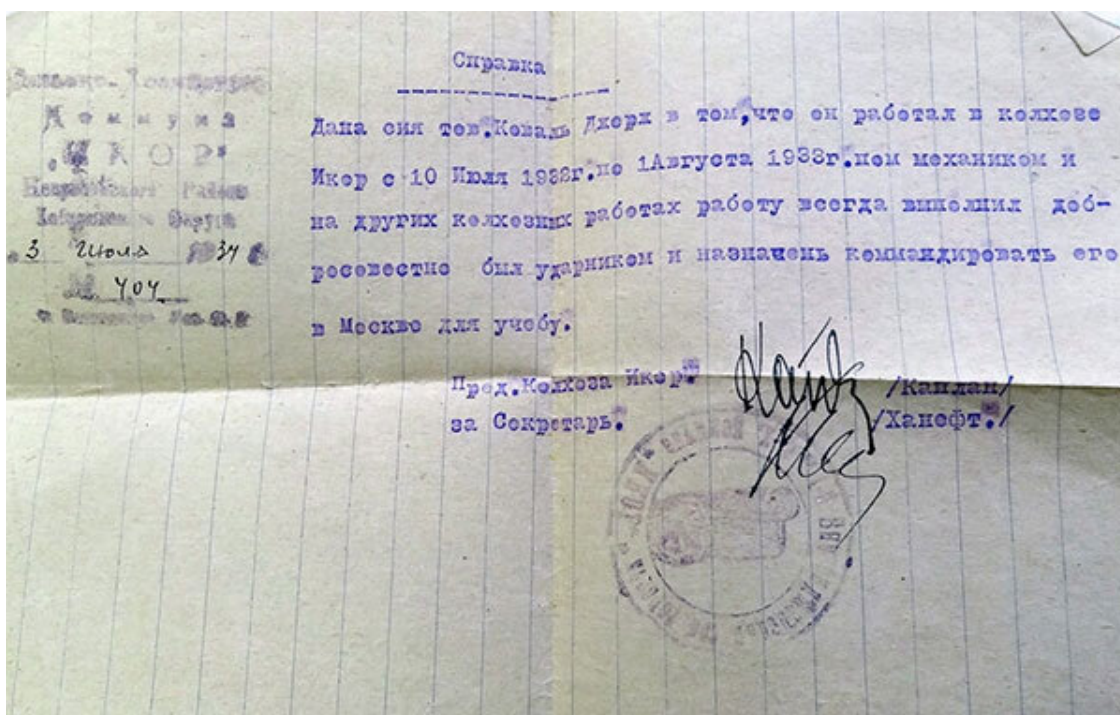 Справка
Коммуна
"ИКОР"
Района
3 Июля 1934 г
404
Дана сия тов.Коваль Джорж в том,что он работал в колхозе
Икор с 10 Июля 1932г.по 1Августа 1933г.пом механиком и
на других колхозных работах работу всегда выполнил доб-
росовестно был ударником и назначень коммандировать его
в Москве для учебу.
Пред.Колхоза Икор. /Каплан/
за Секретарь. /Ханофт./